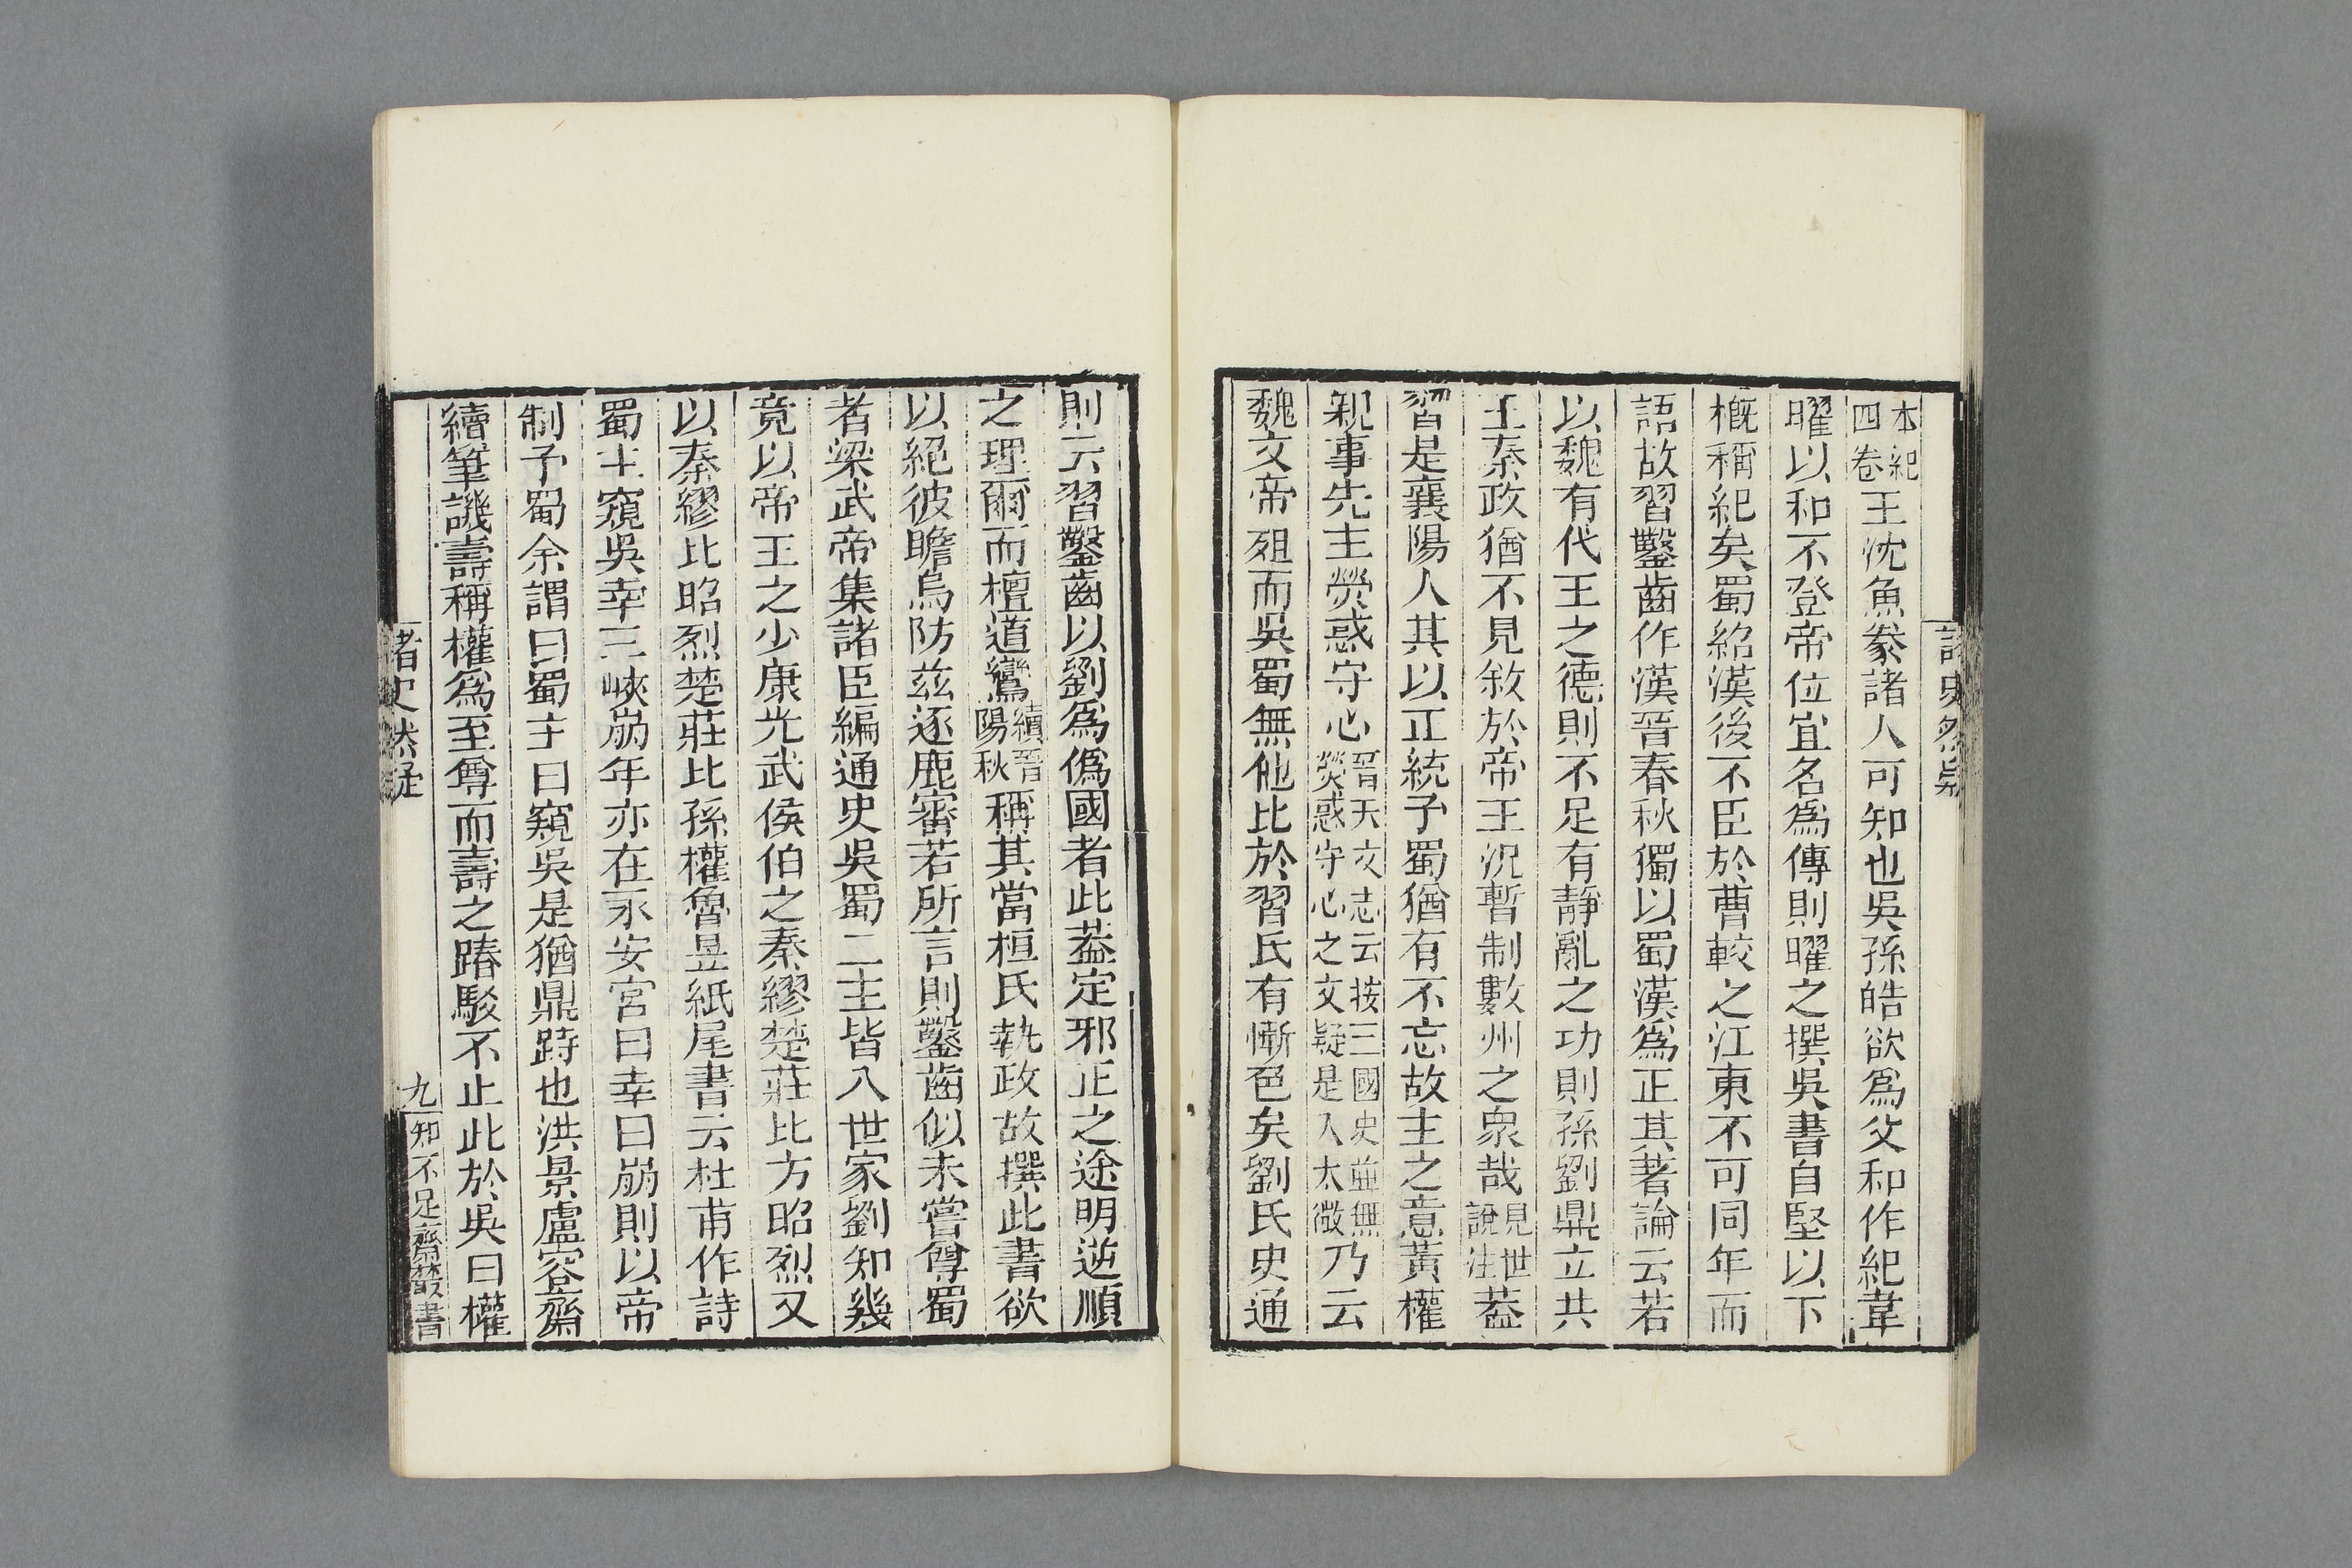 本紀四卷王沈魚豢諸人可知也吳孫皓欲爲父和作紀韋
曜以和不登帝位宜名爲傳則曜之撰吳書自堅以下
概稱紀矣蜀紹漢後不臣於曹較之江東不可同年而
語故習鑿齒作漢晉春秋獨以蜀漢爲正其著論云若
以魏有代王之德則不足有靜亂之功則孫劉鼎立共
王秦政猶不見敘於帝王況暫制數州之衆哉見世說注葢
習是襄陽人其以正統予蜀猶有不忘故主之意黃權
親事先主熒惑守心晉天文志云按三國史並無熒惑守心之文疑是入太微乃云
魏文帝殂而吳蜀無他比於習氏有慚色矣劉氏史通
則云習鑿齒以劉爲僞國者此葢定邪正之途明逆順
之理爾而檀道鸞續晉陽秋稱其當桓氏執政故撰此書欲
以絕彼瞻烏防茲逐鹿審若所言則鑿齒似未嘗尊蜀
者梁武帝集諸臣編通史吳蜀二主皆入世家劉知幾
竟以帝王之少康光武侯伯之秦繆楚莊比方昭烈又
以秦繆比昭烈楚莊比孫權魯昱紙尾書云杜甫作詩
蜀主窺吳幸三峽崩年亦在永安宮曰幸曰崩則以帝
制予蜀余謂曰蜀主曰窺吳是猶鼎跱也洪景盧容齋
續筆譏壽稱權爲至尊而壽之踳駁不止此於吳曰權
諸史然疑
九
知不足齋叢書